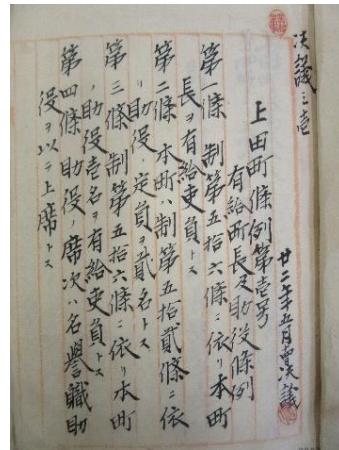 決議三壱
上田町條例第壱号
廿二年五月廿日決議
有給町長及助役條例
第一條 制第五拾六條ニ依リ本町
長ヲ有給吏員トス
第二條 本町ハ制第五拾貳條ニ依
リ助役ノ定員ヲ貳名トス
第三條 制第五拾六條ニ依リ本町
助役壱名ヲ有給吏員トス
第四條 助役ノ席次ハ名譽職助
役ヲ以テ上席トス